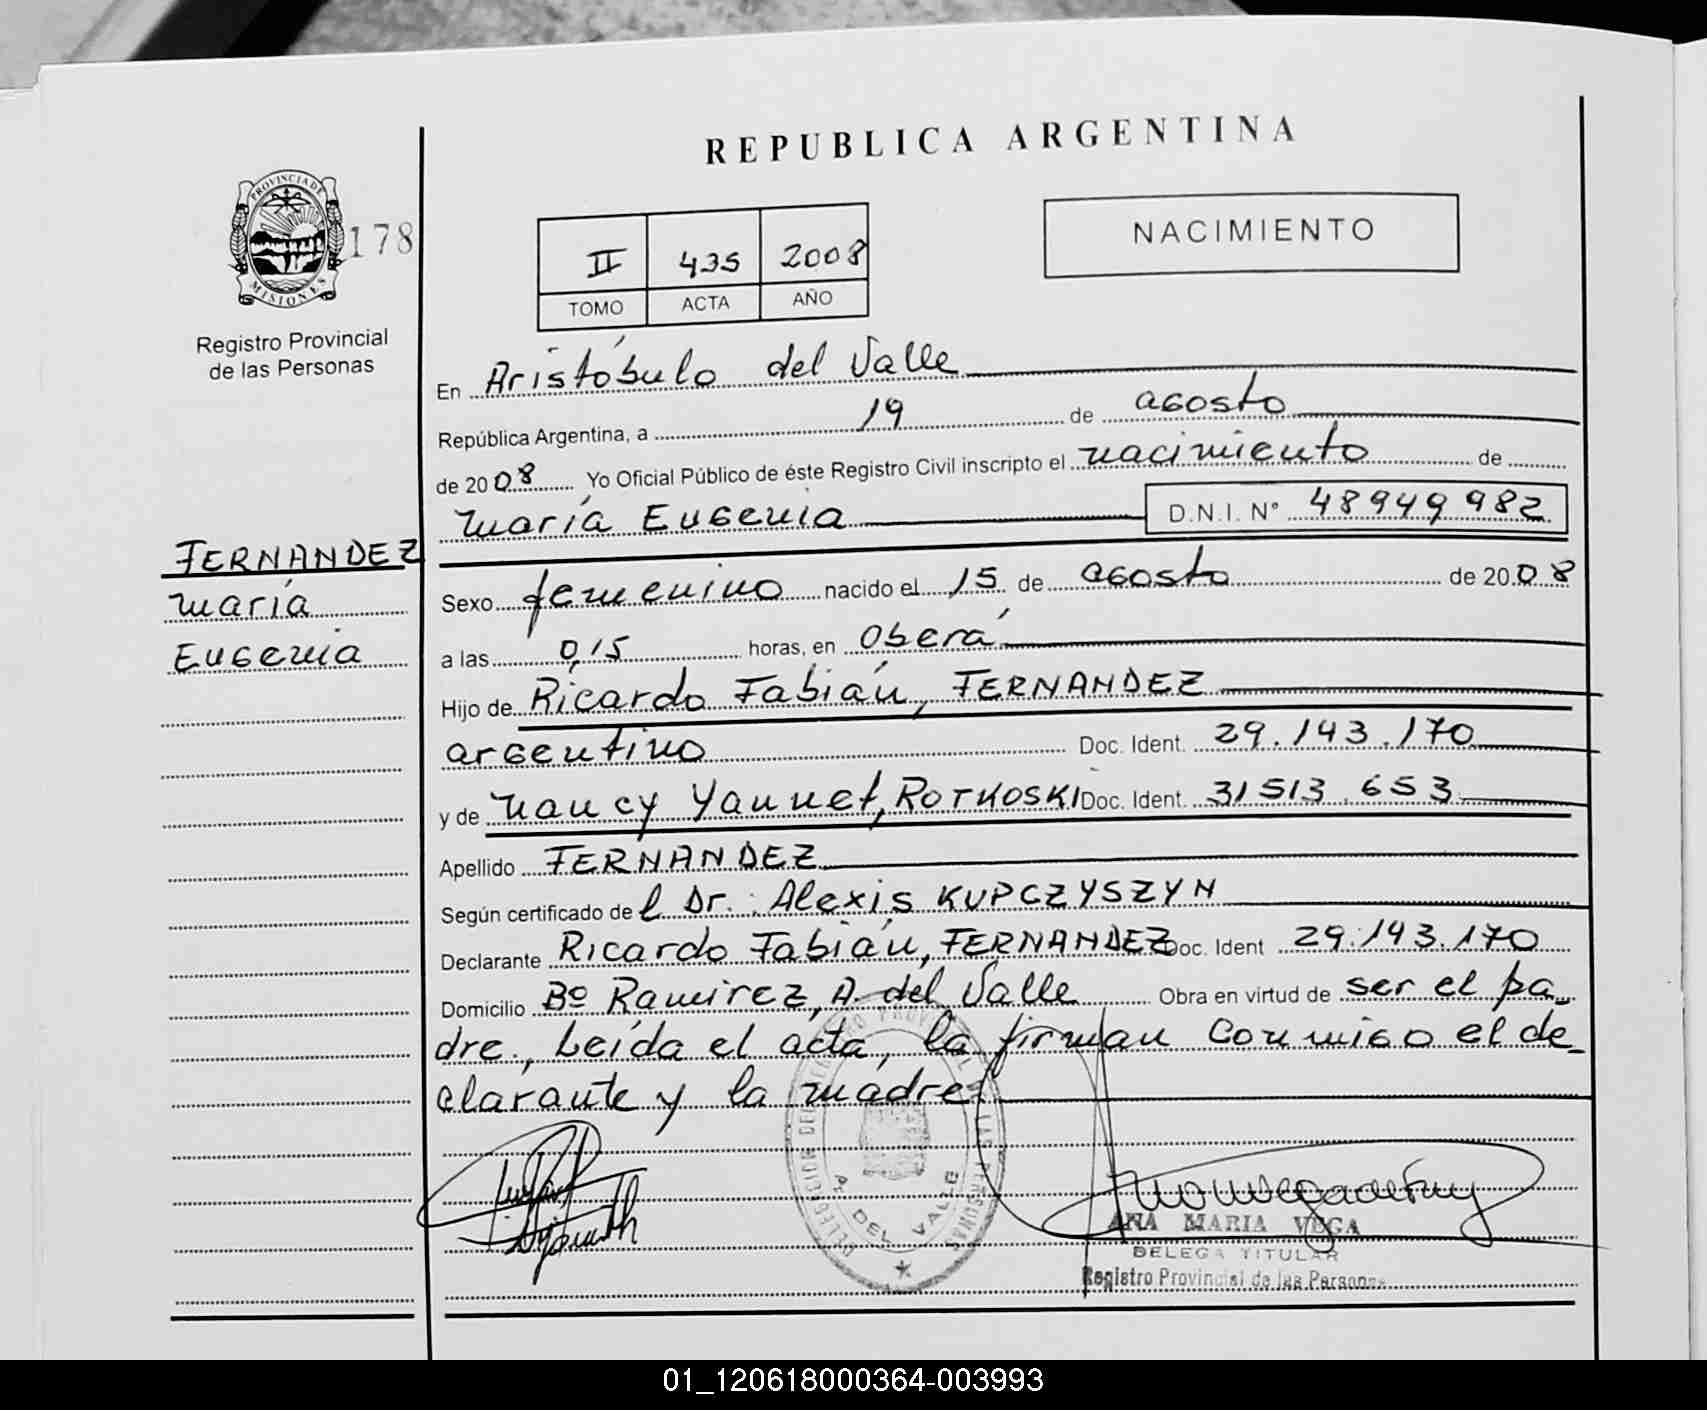 REPUBLICA ARGENTINA
PROVINCIA DE
MISIONES
178
Registro Provincial
de las Personas
II 435 2008
TOMO ACTA AÑO
NACIMIENTO
En Aristóbulo del Valle
República Argentina, a 19 de agosto
de 2008 Yo Oficial Público de éste Registro Civil inscripto el nacimiento de
María Eugenia D.N.I. N° 48949982
FERNANDEZ
María
Eugenia
Sexo femenino nacido el 15 de agosto de 2008
a las 0,15 horas, en Oberá
Hijo de Ricardo Fabián, FERNANDEZ
argentino Doc. Ident. 29.143.170
y de Nancy Yannet, ROTKOSKI Doc. Ident. 31513.653
Apellido FERNANDEZ
Según certificado del Dr. Alexis KUPCZYSZYN
Declarante Ricardo Fabián, FERNANDEZ Doc. Ident 29.143.170
Domicilio Bº Ramirez, A. del Valle Obra en virtud de ser el pa-
dre., Leída el acta, la firman conmigo el de-
clarante y la madre
A. DEL VALLE
ANA MARIA VEGA
DELEGA TITULAR
Registro Provincial de las Personas
01_120618000364-003993